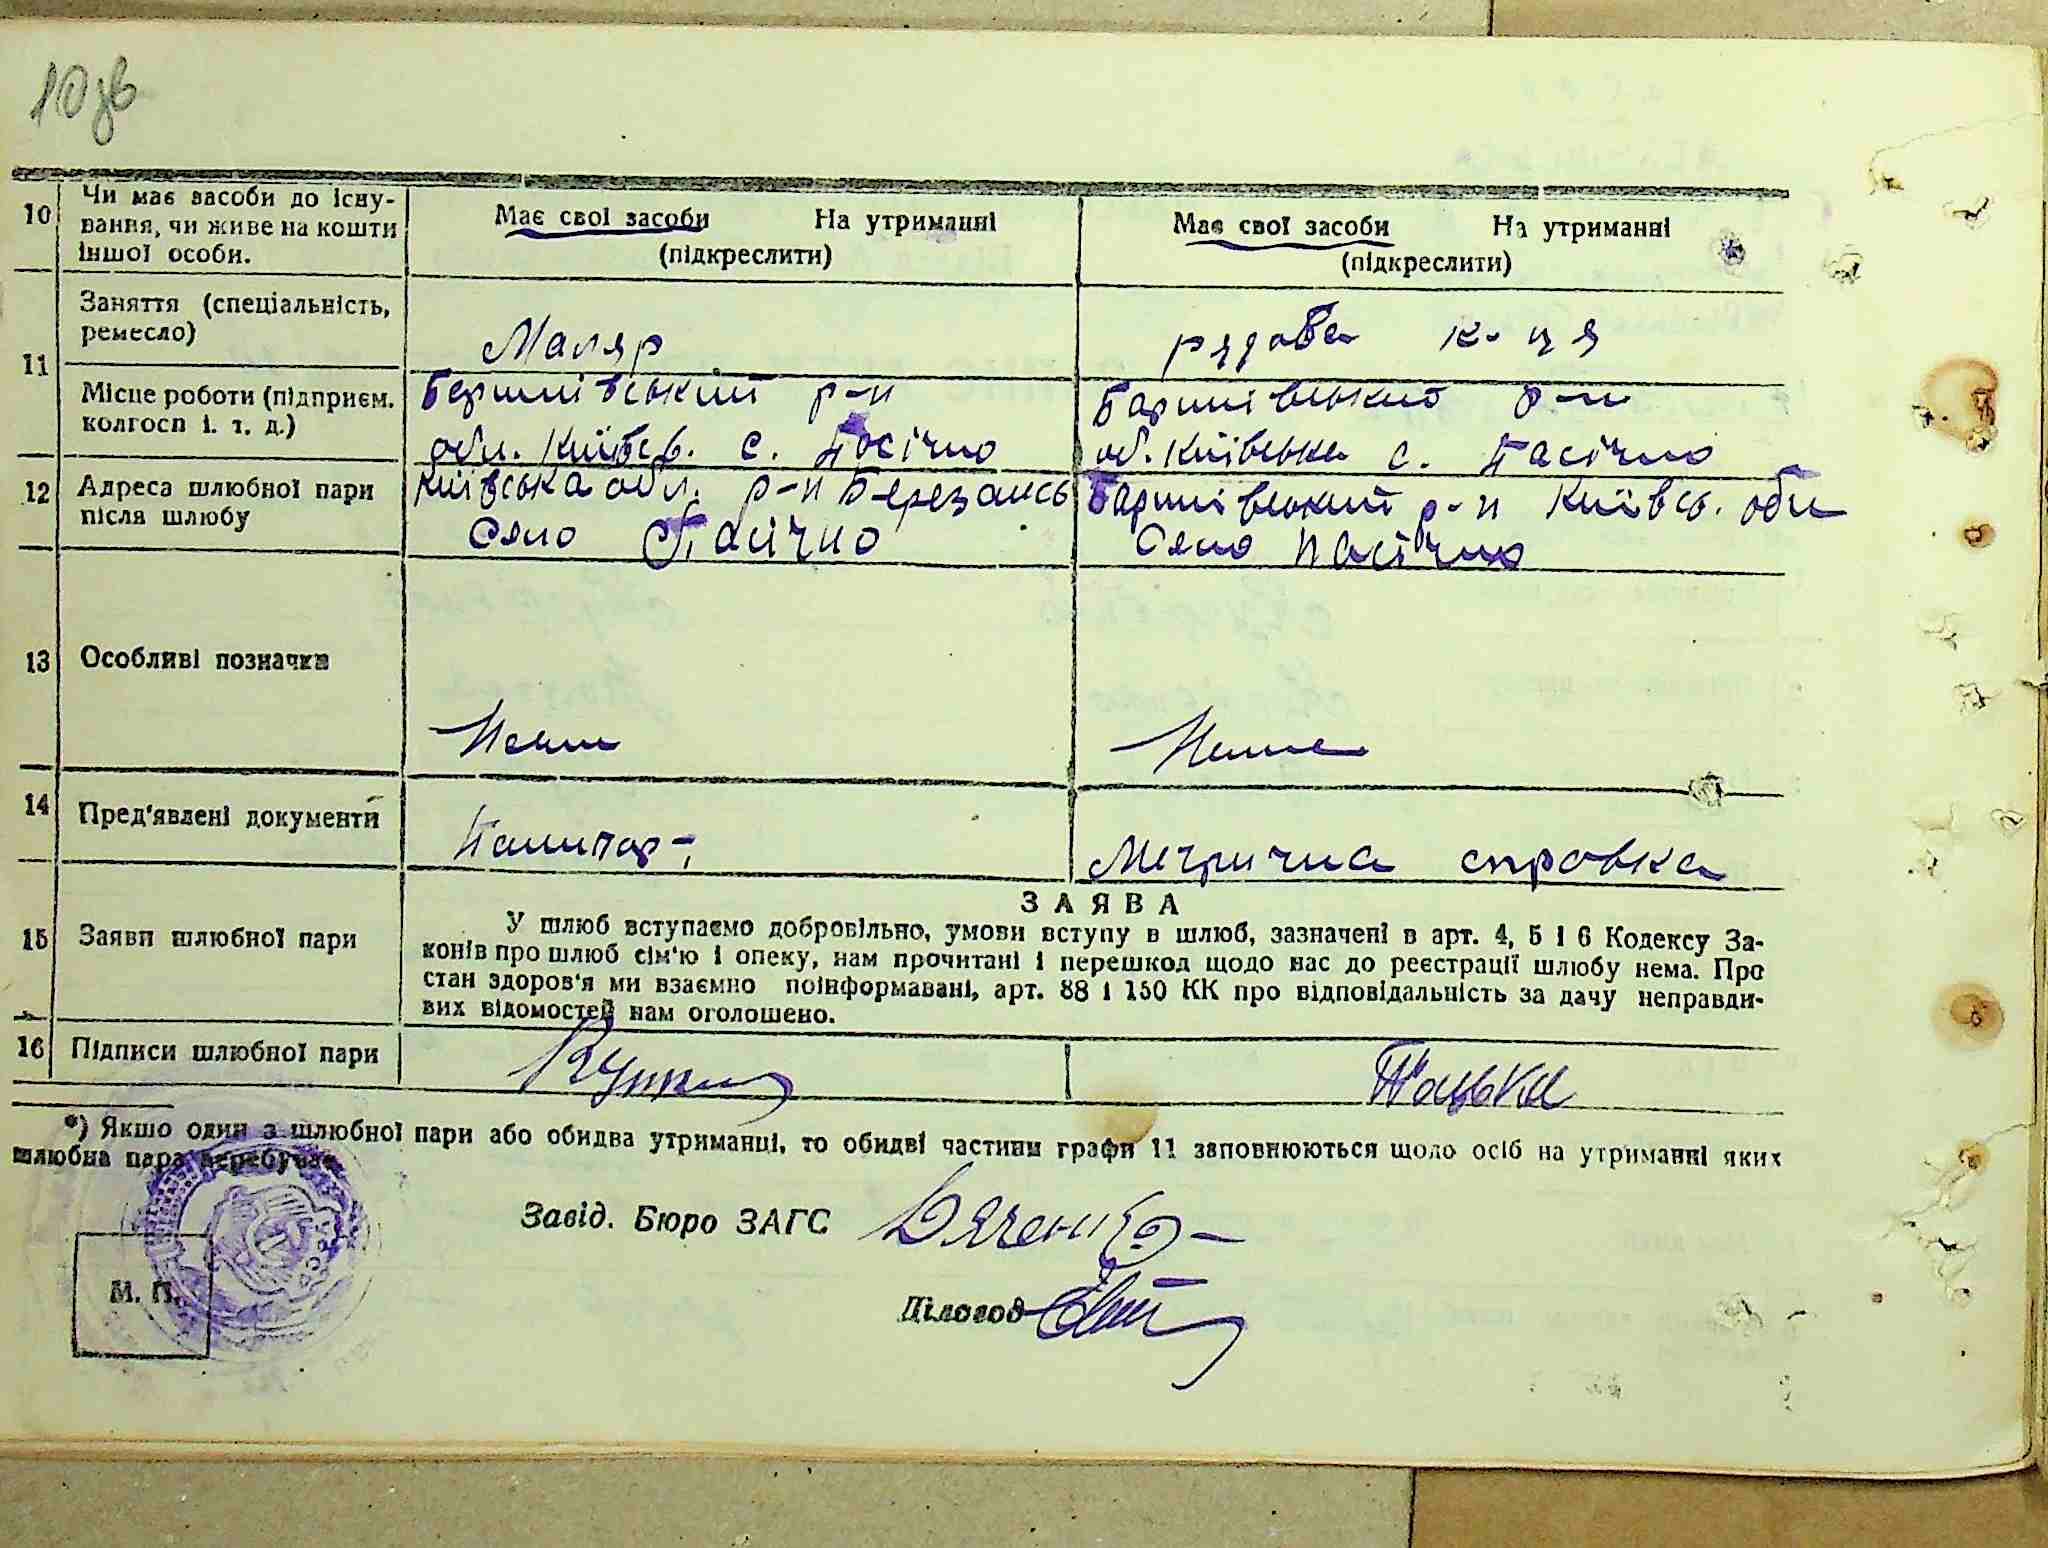 10 зв
10 Чи має засоби до існу-
вання, чи живе на кошти
іншої особи.
Має свої засоби На утриманні
(підкреслити)
Має свої засоби На утриманні
(підкреслити)
11 Заняття (спеціальність,
ремесло)
Маляр
рядова к-ця
Місце роботи (підприєм.
колгосп і. т. д.)
р-н
обл. Київсь. с. Пасічно
Баришівський р-н
об. Київська с. Пасічно
12 Адреса шлюбної пари
після шлюбу
Київська обл. р-н Березансь
Село Пасічно
Баришівський р-н Київсь. обл
Село Пасічно
13 Особливі позначки
Немає
Немає
14 Пред'явлені документи
Пашпорт
Метрична справка
15 Заяви шлюбної пари
ЗАЯВА
У шлюб вступаємо добровільно, умови вступу в шлюб, зазначені в арт. 4, 5 і 6 Кодексу За-
конів про шлюб сім'ю і опеку, нам прочитані і перешкод щодо нас до реєстрації шлюбу нема. Про
стан здоров'я ми взаємно поінформавані, арт. 88 і 150 КК про відповідальність за дачу неправди-
вих відомостей нам оголошено.
16 Підписи шлюбної пари
*) Якщо один з шлюбної пари або обидва утриманці, то обидві частини графи 11 заповнюються щодо осіб на утриманні яких
шлюбна пара перебуває.
Завід. Бюро ЗАГС Дяченко
Діловод
М. П.